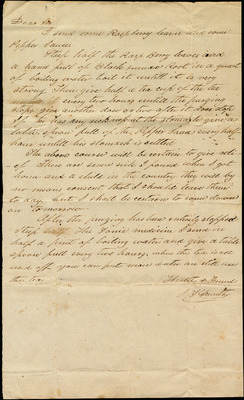 Dear Sir
I send some Raspberry leaves and some
Pepper Sauce
Steep half the Rasp Berry leaves and
a hand full of Black sumac Root in a quart
of boiling water boil it until it is very
strong. Then give half a tea cup of the tea
every two hours until the purging
stops give another dose or two after it does stop
If he has any sickness at the stomach give a
table spoon full of the Pepper Sauce every half
hour until his stomach is settled
The above course will be certain to give relief
when I got
home and a child in the country they will by
no means consent that I should leave them
to day, but I shall be certain to come down
on tomorrow
After the purging has been entirely stopped
Steep half the Tonic medicine I send in
half a pint of boiling water and give a table
spoon full every two hours, when the tea is all
used off you can put more water on it to use
the tea